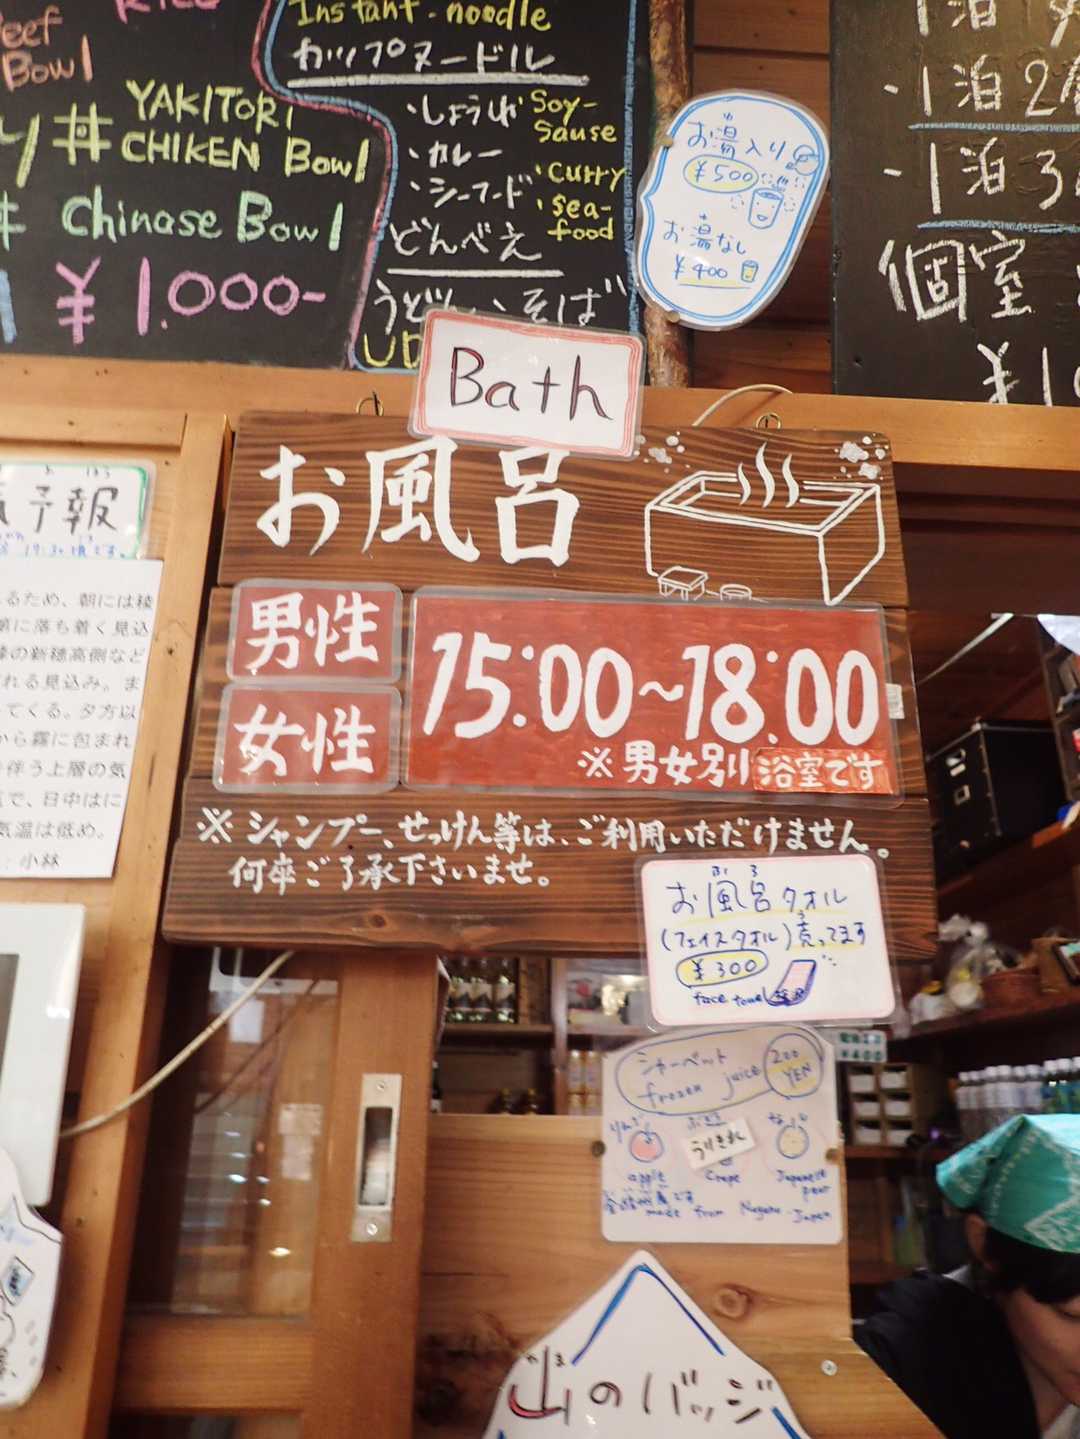 Beef
Bowl
YAKITORI
CHIKEN Bowl
丼
Chinase Bowl
¥1.000-
Instant-noodle
カップヌードル
・しょうゆ Soy-
Sause
・カレー ・curry
・シーフード ・sea-
food
どんべえ
うどん、そば
お湯入り
¥500
お湯なし
¥400
・1泊2
・1泊3
個室
Bath
お風呂
男性
女性
15:00~18:00
※男女別浴室です
※シャンプー、せっけん等は、ご利用いただけません。
何卒ご了承下さいませ。
お風呂タオル
ふろ
(フェイスタオル)売ってます
¥300
face towel
シャーベット
frozen juice
200
YEN
りんご
うりきれ
なし
apple
Grape
Japanese
pear
made from Nagano-Japan
山のバッジ
予報
るため、朝には稜
に落ち着く見込
の新穂高側など
れる見込み。ま
てくる。夕方以
から霧に包まれ
伴う上層の気
で、日中はに
気温は低め。
：小林
¥400